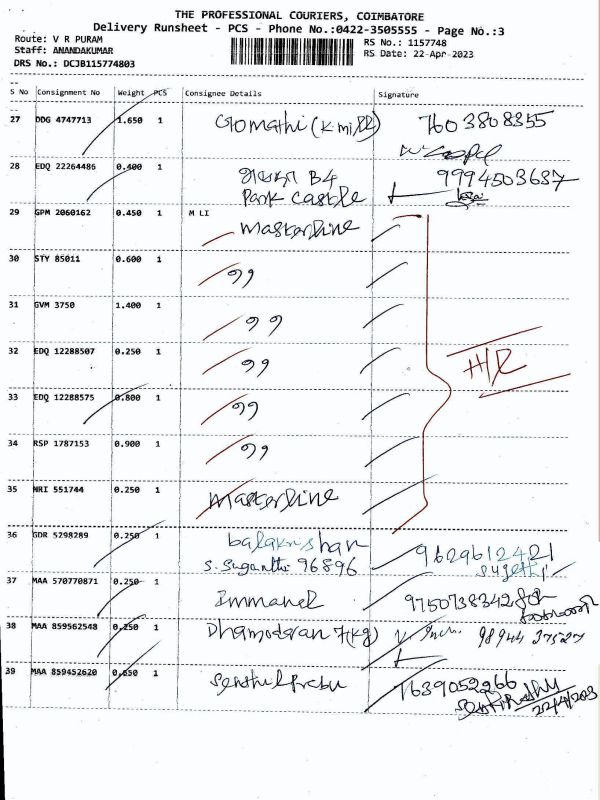 THE PROFESSIONAL COURIERS, COIMBATORE
Delivery Runsheet - PCS - Phone No.:0422-3505555 - Page No.:3
Route: V R PURAM
Staff: ANANDAKUMAR
DRS No.: DCJB115774803
RS No.: 1157748
RS Date: 22-Apr-2023
S No Consignment No Weight PCS Consignee Details Signature
27 DDG 4747713 1.650 1 Gomathi 7603808355
28 EDQ 22264486 0.400 1 B4 9994503637
Park Castle
29 GPM 2060162 0.450 1 M LI
Masterline
30 STY 85011 0.600 1 "
31 GVM 3750 1.400 1 "
32 EDQ 12288507 0.250 1 " H/R
33 EDQ 12288575 0.800 1 "
34 RSP 1787153 0.900 1 "
35 NRI 551744 0.250 1 Masterline
36 GDR 5298289 0.250 1 balakrishan 9629612421
S. Suganthi 96896
37 MAA 570770871 0.250 1 Immanel 9750738342
38 MAA 859562548 0.250 1 Dhamodaran 7(kg) 98944 37527
39 MAA 859452620 0.650 1 Senthilprabu 7639052266
22/4/203